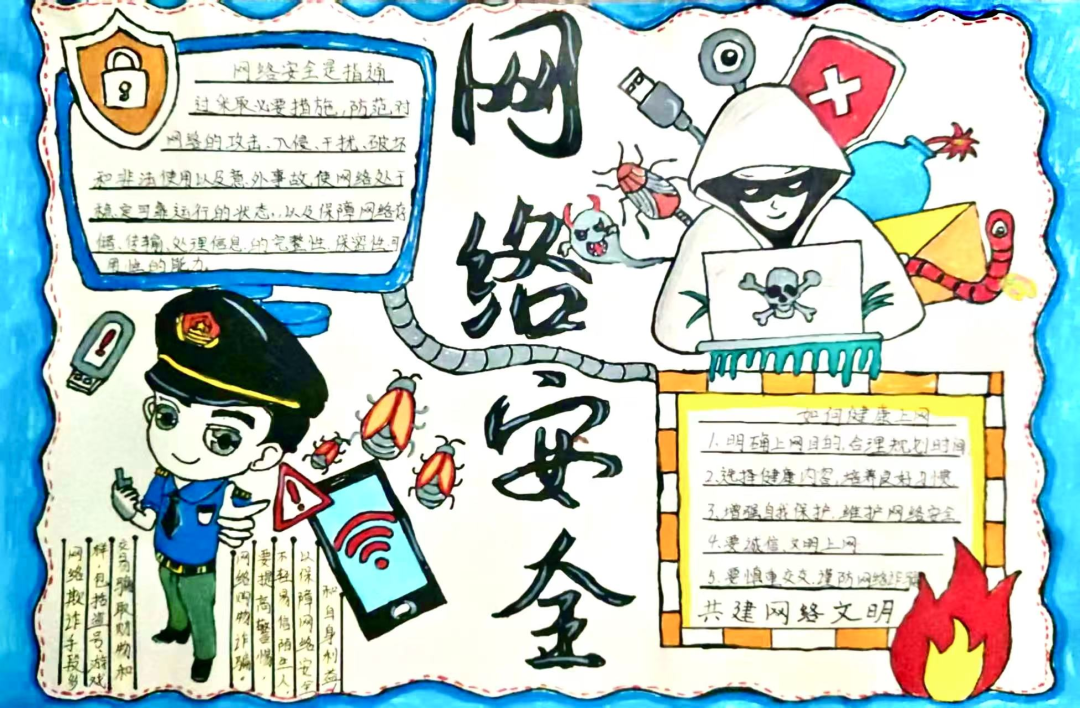 网络安全
网络安全是指通
过采取必要措施,防范对
网络的攻击、入侵、干扰、破坏
和非法使用以及意外事故,使网络处于
稳定可靠运行的状态,以及保障网络存
储、传输、处理信息的完整性、保密性、可
用性的能力
网络欺诈手段多
样,包括盗号、游戏
交易骗取财物和
网络购物诈骗。
要提高警惕,
不轻易信陌生人,
以保障网络安全
和自身利益
如何健康上网
1.明确上网目的,合理规划时间
2.选择健康内容,培养良好习惯
3.增强自我保护,维护网络安全
4.要诚信文明上网
5.要慎重交友,谨防网络诈骗
共建网络文明